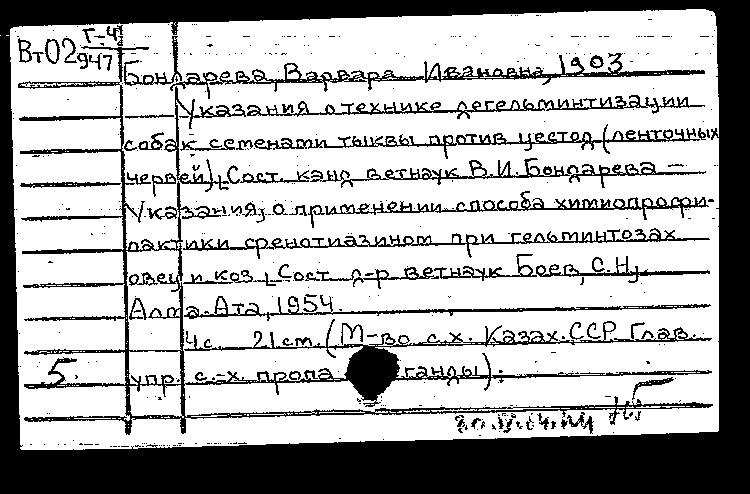 Вт02 Г-4
947
Бондарева, Варвара Ивановна, 1903
Указания о технике дегельминтизации
собак семенами тыквы против цестод (ленточных
червей), Сост. канд ветнаук В.И. Бондарева —
Указания, о применении способа химиопрофи-
лактики фенотиазином при гельминтозах
овец и коз, Сост д-р ветнаук Боев, С.Н,
Алма-Ата, 1954.
4с. 21см. (М-во с.х. Казах.ССР Глав.
5. упр. с.-х. пропаганды).